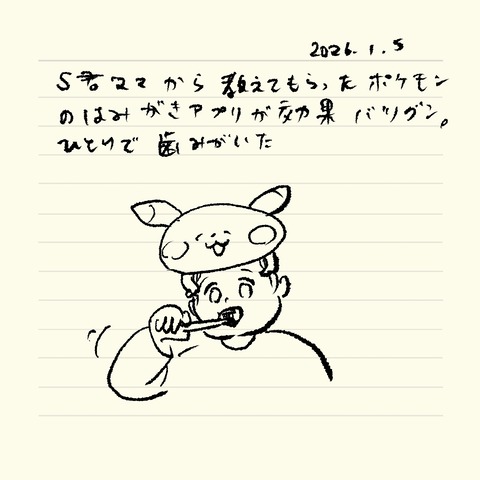 2026.1.5
S君ママから教えてもらったポケモン
のはみがきアプリが効果バツグン。
ひとりで歯みがいた